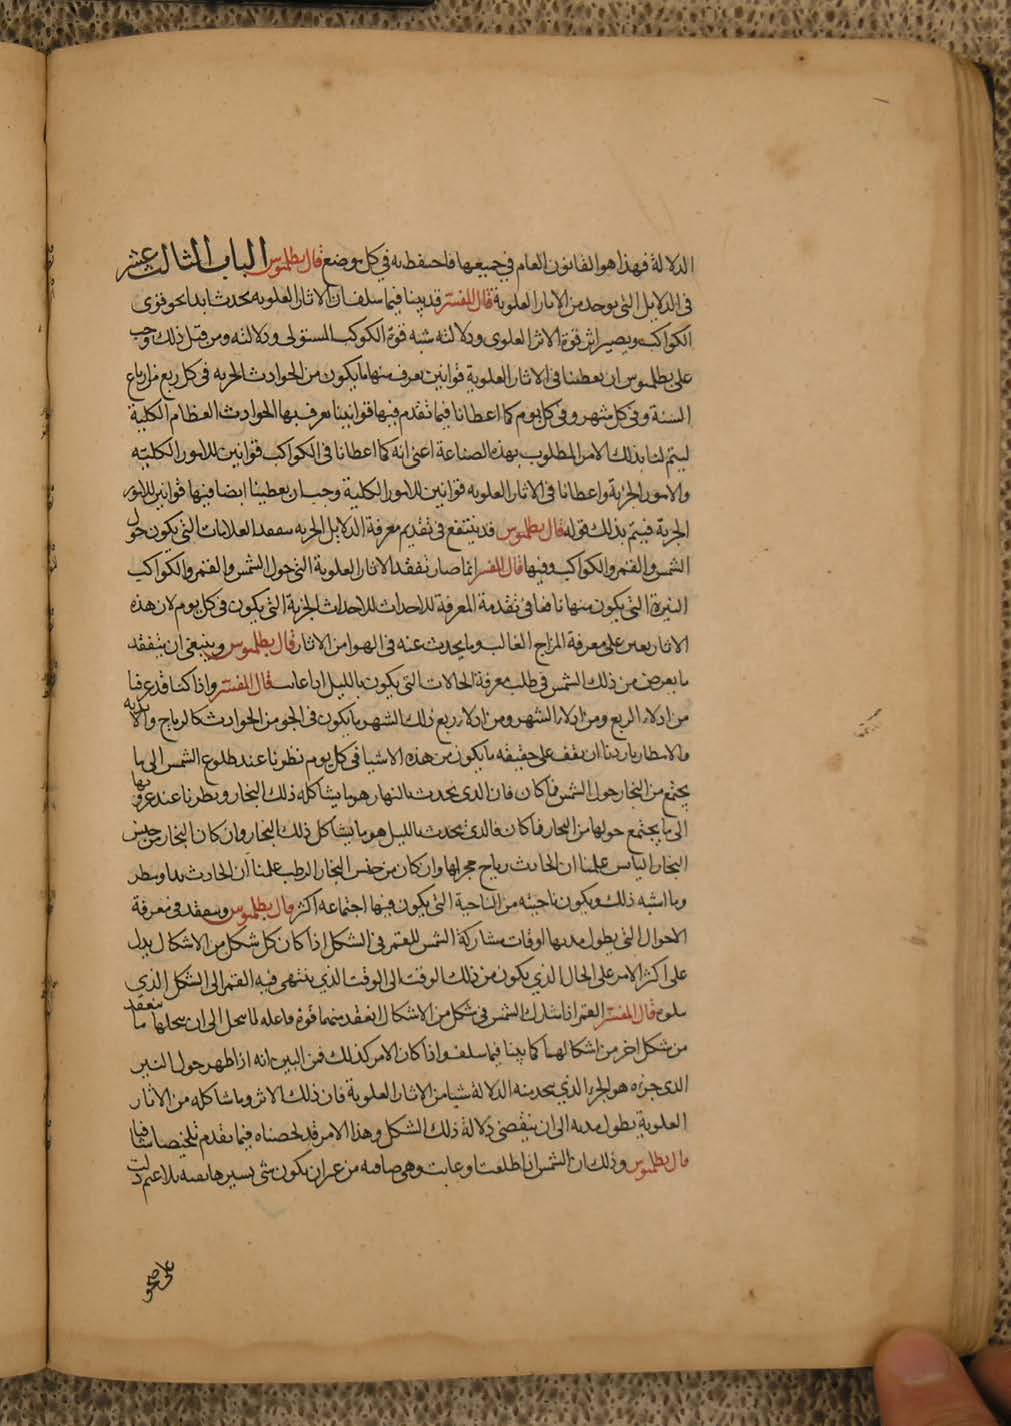 الدلالة فهذا هو القانون العام في جميعها فاحتفظ به في كل موضع قال بطلميوس الباب الثالث عشر
في الدلايل التي توجد من الاثار العلوية قال المفسر قد بينا فيما سلف ان الاثار العلويه تحدث ابدا بحو قوى
الكواكب ويصير اثر قوة الاثر العلوي ودلالته شبه قوة الكوكب المستولى ودلالته ومن قبل ذلك وجب
على بطلميوس ان يعطينا في الاثار العلوية قوانين نعرف منها ما يكون من الحوادث الجزيه في كل ربع من ارباع
السنة وفي كل شهر وفي كل يوم كما اعطانا فيما تقدم فيها قوانينا نعرف بها الحوادث العظام الكلية
ليتم لنا بذلك الامر المطلوب بهذه الصناعة اعني انه كما اعطانا في الكواكب قوانين للامور الكليه
والامور الجزية واعطانا في الاثار العلويه قوانين للامور الكلية وجب ان يعطينا ايضا فيها قوانين للامور
الجزية فيتم بذلك قوله قال بطلميوس قد ينتفع في تقديم معرفة الدلايل الجزيه بتفقد العلامات التي يكون حول
الشمس والقمر والكواكب وفيها قال المفسر انما صار تفقد الاثار العلوية التي حول الشمس والقمر والكواكب
النيرة التي يكون منها نافعا في تقدمة المعرفة للاحداث للاحداث الجزية التي يكون في كل يوم لان هذه
الاثار يعين على معرفة المزاج الغالب وما يحدث عنه في الهوا من الاثار قال بطلميوس وينبغي ان يتفقد
ما يعرض من ذلك الشمس في طلب معرفة الحالات التي يكون بالليل اذا غابت قال المفسر واذا كنا قد عرفنا
من ادلاء الربع ومن ادلاء الشهر ومن ادلاء ربع ذلك الشهر ما يكون في الجو من الحوادث كالرياح والابدية
والامطار واردنا ان نقف على حقيقه ما يكون من هذه الاشيا في كل يوم نظرنا عند طلوع الشمس الى ما
يجتمع من البخار حول الشمس فما كان فان الذي يحدث بالنهار هو ما يشاكله ذلك البخار ونظرنا عند غروبها
الى ما يجتمع حولها من البخار فما كان فالذي يحدث بالليل هو ما يشاكل ذلك البخار وان كان البخار من جنس
البخار اليابس علمنا ان الحادث رياح مجراها وان كان من جنس البخار الرطب علمنا ان الحادث ندا ومطر
وما اشبه ذلك ويكون ناحيته من الناحية التي يكون فيها اجتماعه اكثر قال بطلميوس ويتفقد في معرفة
الاحوال التي يطول مدتها اوقات مشاركة الشمس للقمر في الشكل اذا كان كل شكل من الاشكال يدل
على اكثر الامر على الحال الذي يكون من ذلك الوقت الى الوقت الذي ينتهي فيه القمر الى الشكل الذي
يتلوه قال المفسر القمر اذا شارك الشمس في شكل من الاشكال انعقد بينهما قوة فاعله لا تنحل الى ان يحلها ما ينعقد
من شكل اخر من اشكالهما كما بينا فيما سلف واذا كان الامر كذلك فمن البين انه اذا ظهر حول النير
الذي جزه هو الجزء الذي تحدث منه الدلالة شيا من الاثار العلوية فان ذلك الاثر وما شاكله من الاثار
العلوية يطول مدته الى ان ينقضي دلالة ذلك الشكل وهذا الامر قد لخصناه فيما تقدم تلخيصا شافيا
قال بطلميوس وذلك ان الشمس اذا طلعت او غابت وهي صافيه من غير ان يكون شي يسير ها بسه بلا غيم دلت
على صحو